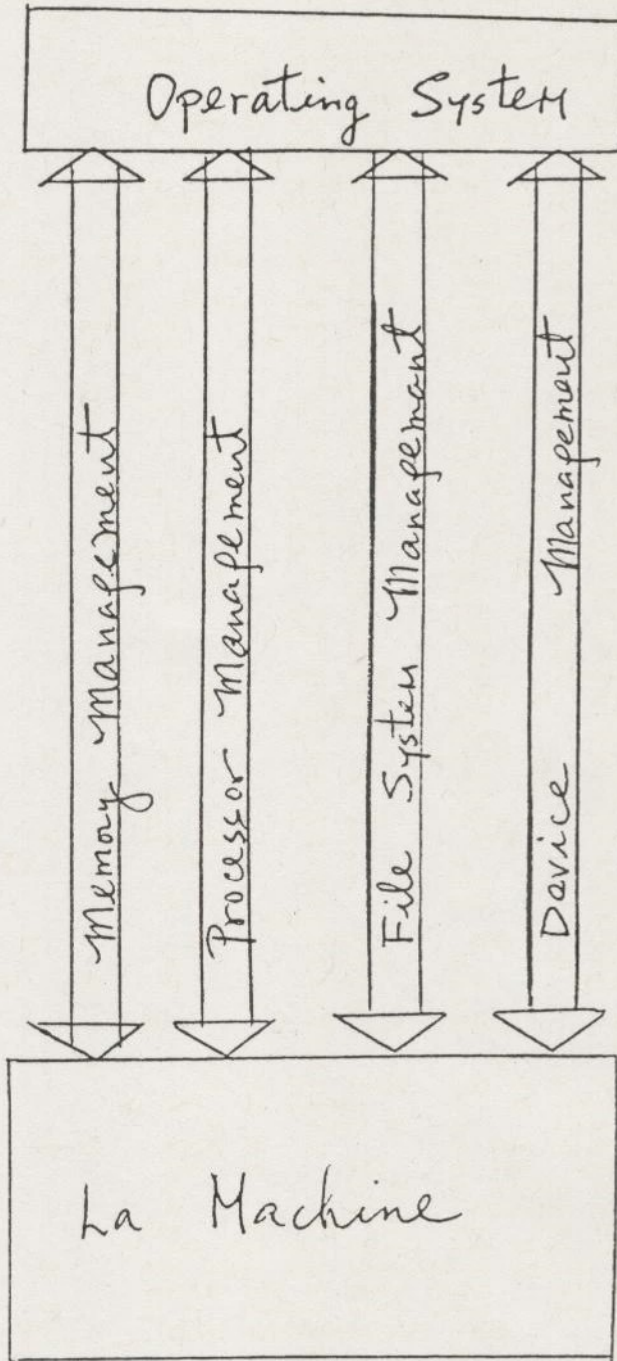 Operating System
Memory Management
Processor Management
File System Management
Device Management
La Machine